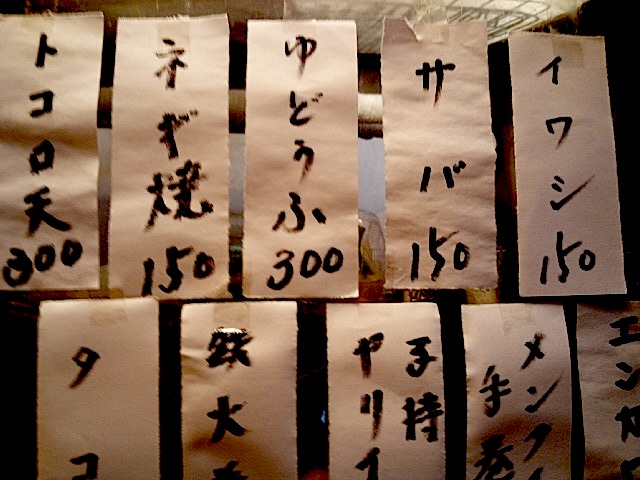 イワシ
150
サバ
150
ゆどうふ
300
ネギ焼
150
トコロ天
300
メンタイ
手巻
子持
ヤリイ
鉄火
タコ